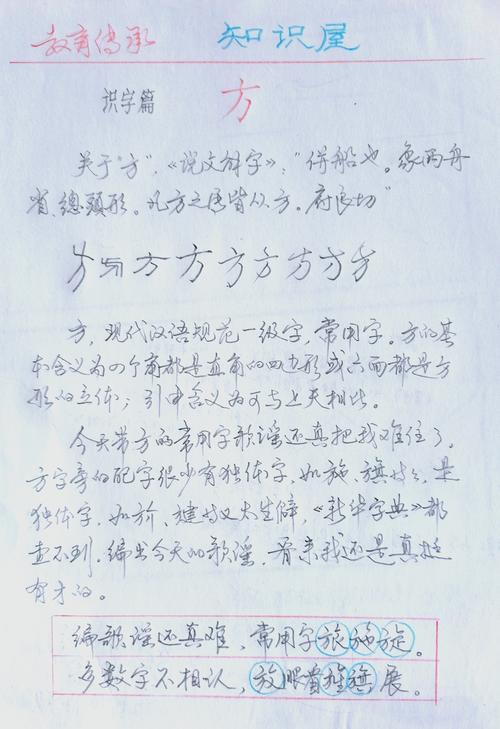 教育传承 知识屋
识字篇 方
关于"方",《说文解字》:"併船也。象两舟
省、總頭形。凡方之属皆从方。府良切"
方,现代汉语规范一级字,常用字。方的基
本含义为四个角都是直角的四边形或六面都是方
形的立体;引申含义为可与上天相比。
今天带方的常用字歌谣还真把我难住了。
方字旁的配字很少有独体字,如施、旗等;是
独体字,如於、旌等又太生僻,《新华字典》都
查不到,编出今天的歌谣,看来我还是真挺
有才的。
编歌谣还真难,常用字旅施旋。
多数字不相认,放眼首推旗展。